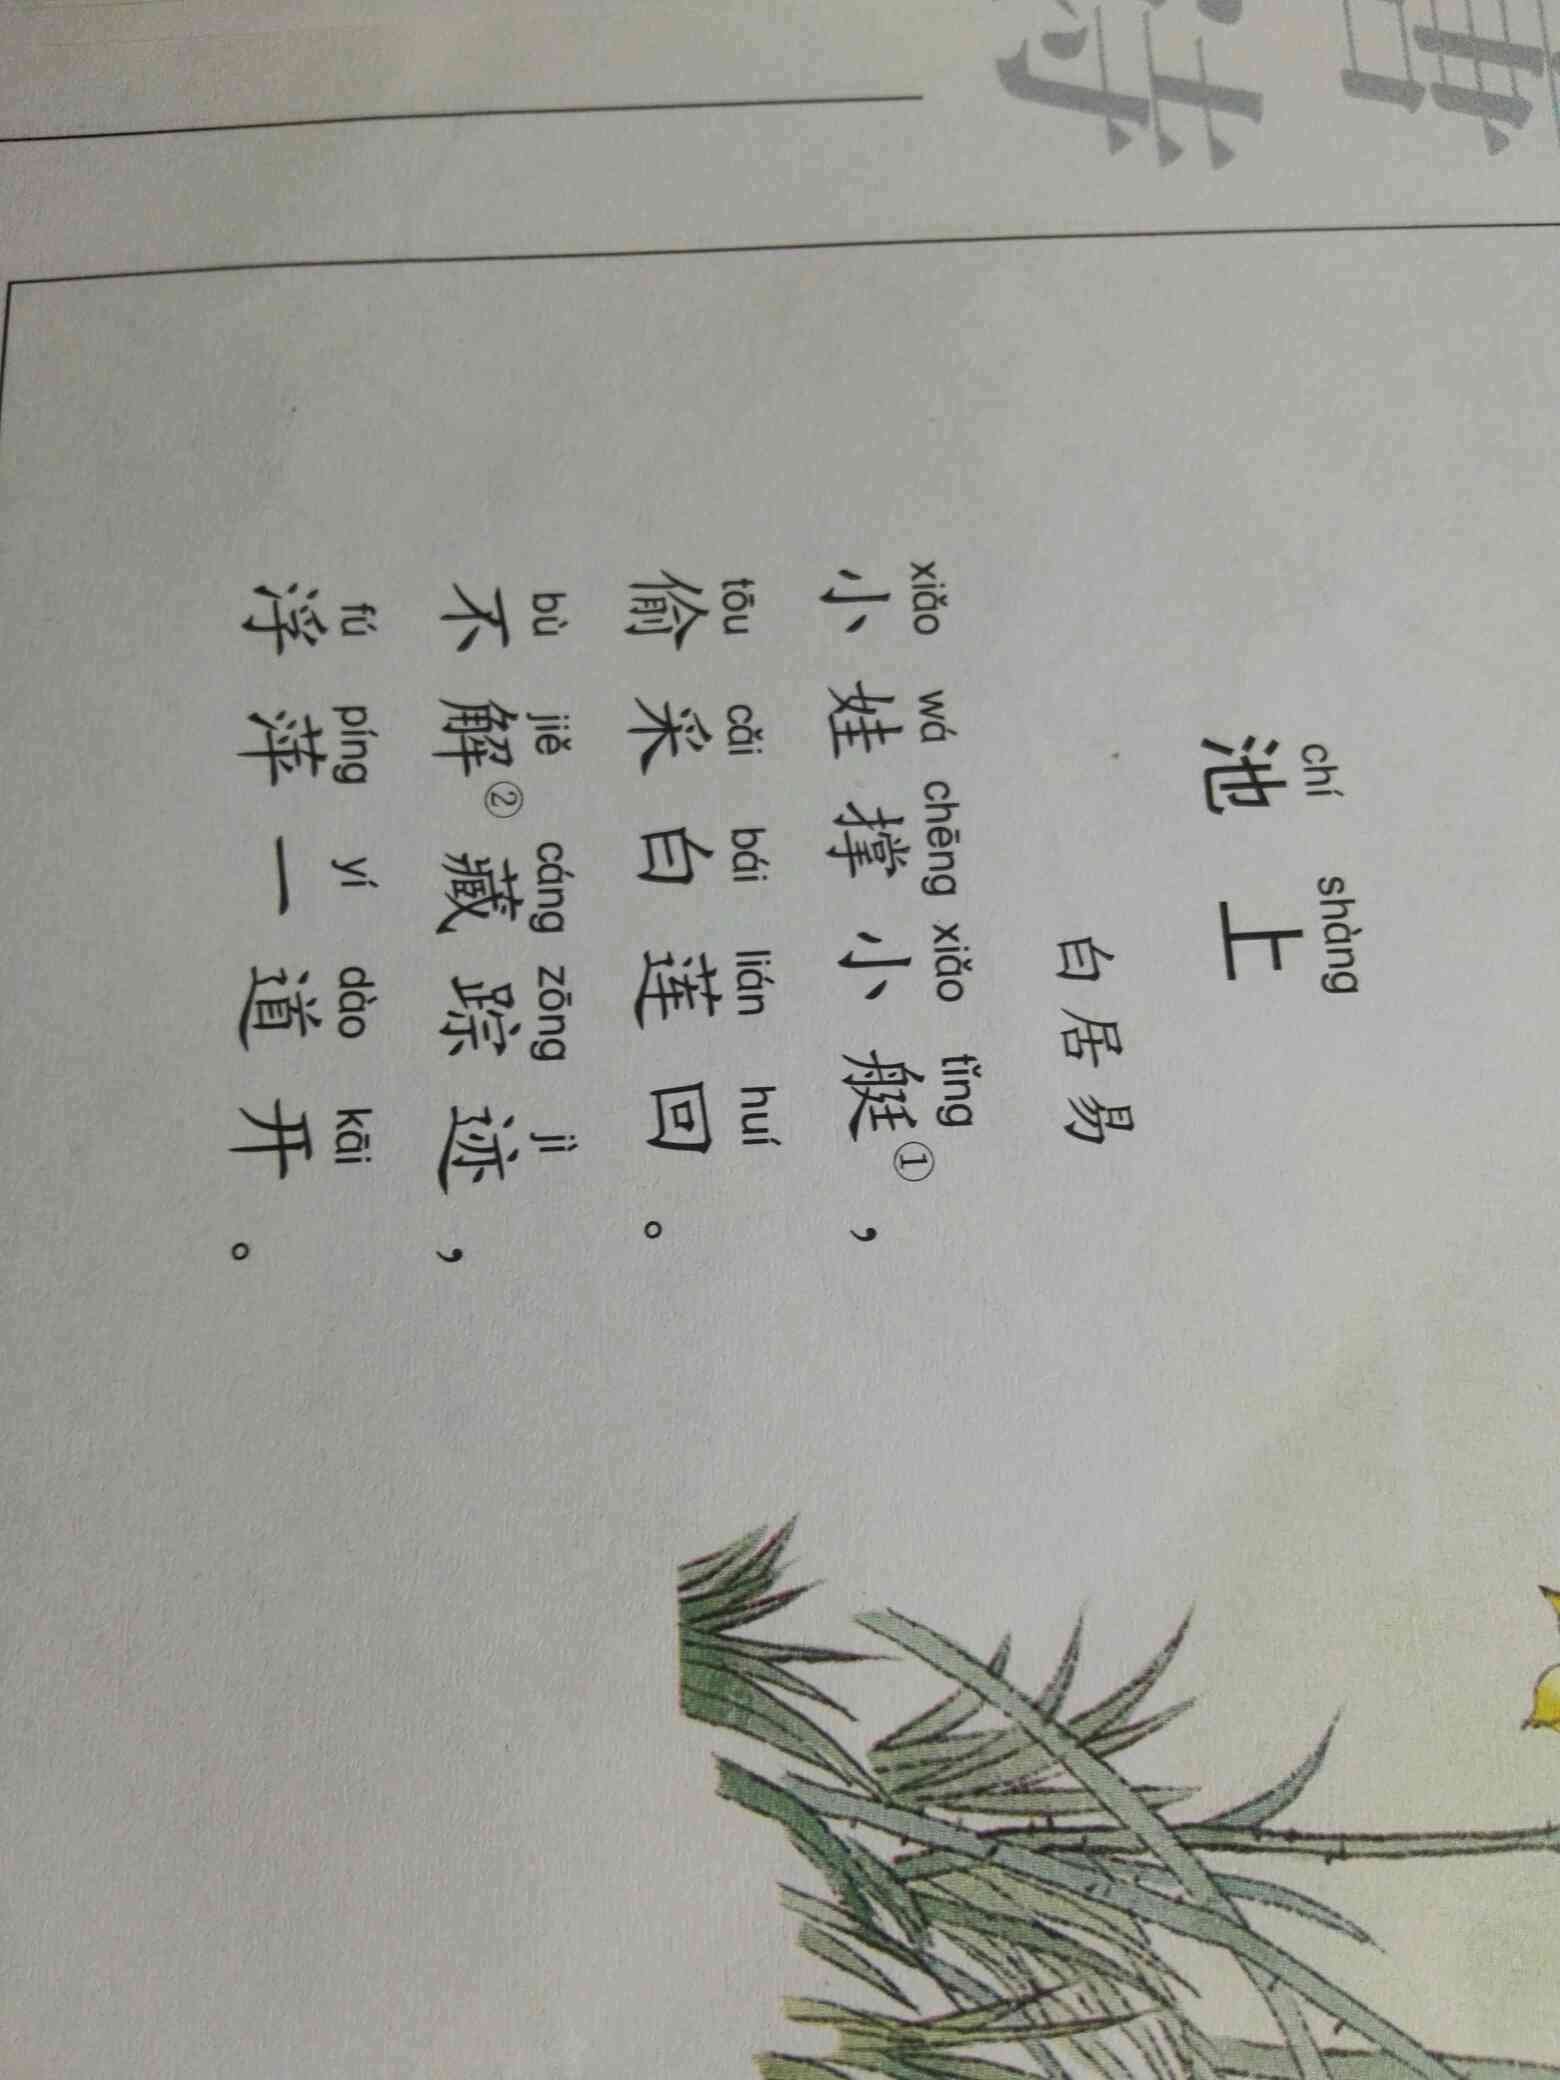 chí shàng
池上
白居易
xiǎo wá chēng xiǎo tǐng
小娃撑小艇①，
tōu cǎi bái lián huí
偷采白莲回。
bù jiě cáng zōng jì
不解②藏踪迹，
fú píng yí dào kāi
浮萍一道开。